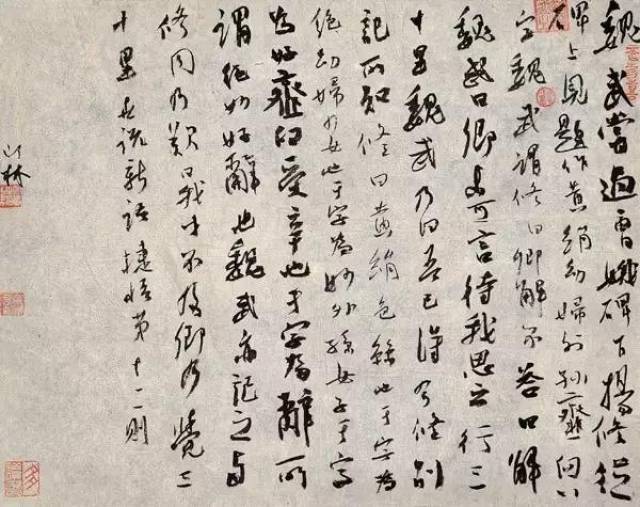 魏武嘗過曹娥碑下楊修從
碑上見題作黃絹幼婦外孫韲臼八
字魏武謂修曰卿解不答曰解
魏武曰卿未可言待我思之行三
十里魏武乃曰吾已得令修別
記所知修曰黃絹色絲也于字為
絕幼婦少女也于字為妙外孫女子于字
為好韲臼受辛也于字為辭所
謂絕妙好辭也魏武亦記之與
修同乃歎曰我才不及卿乃覺三
十里 世說新語捷悟第十二則
林